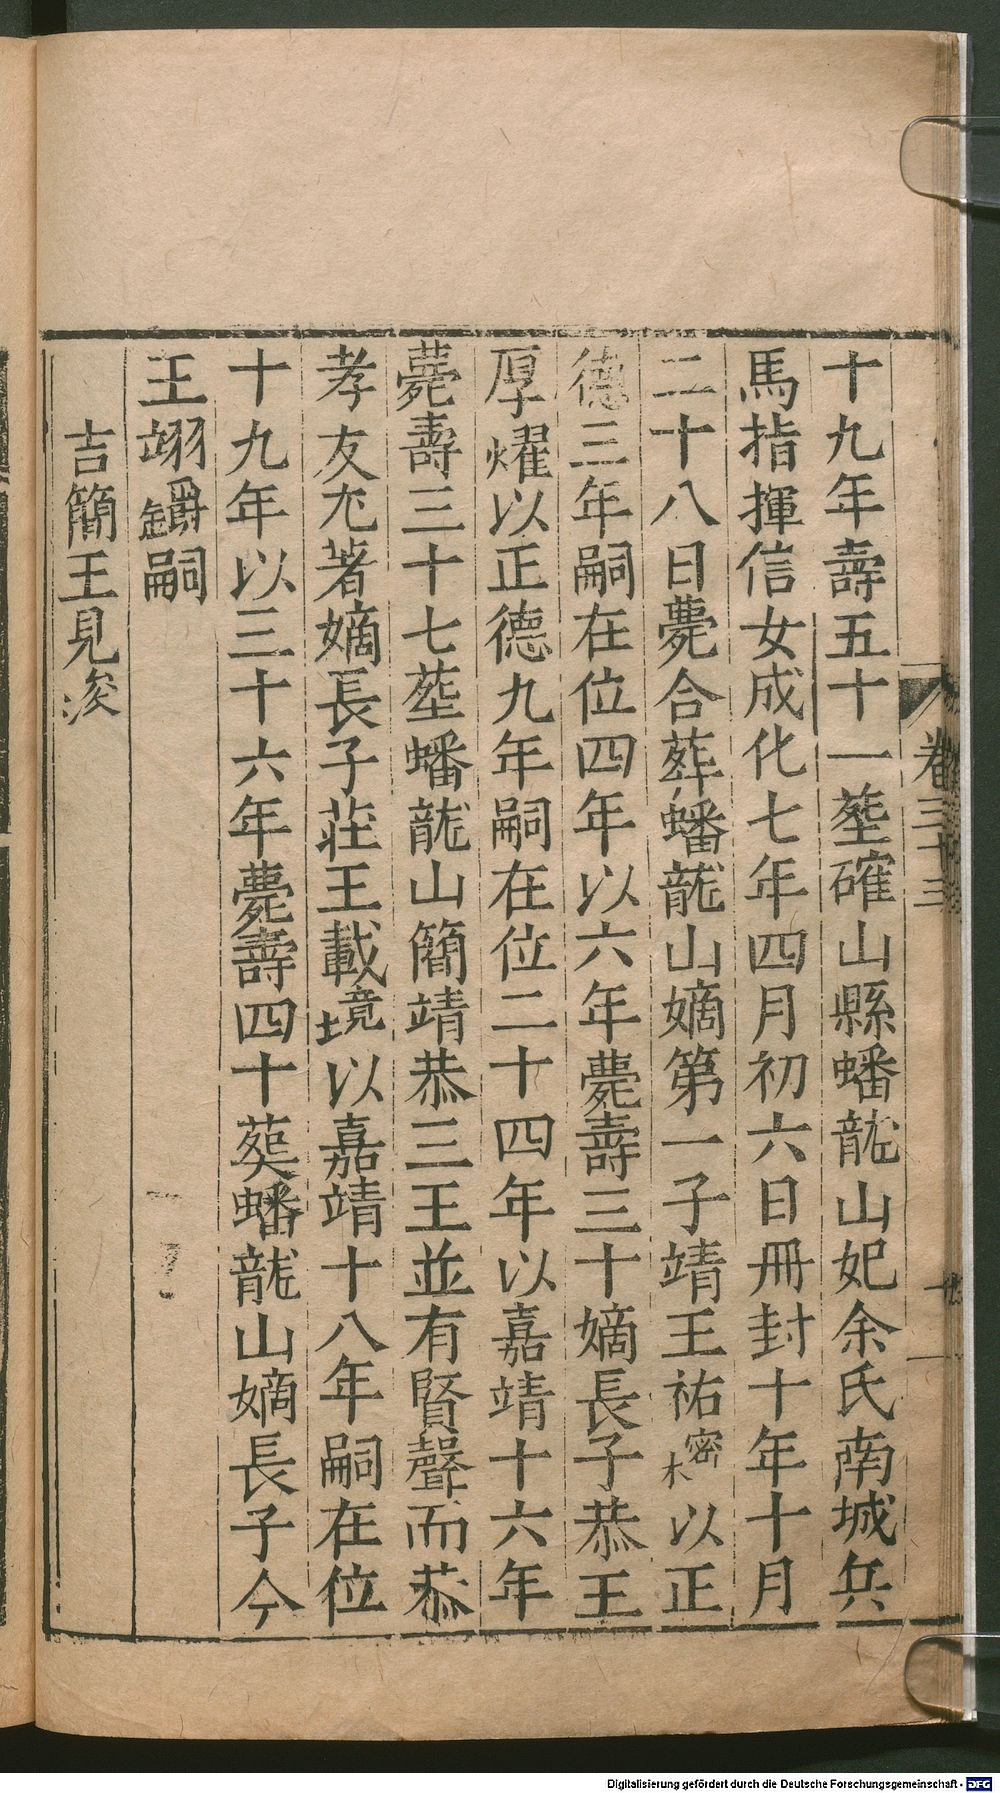 十九年壽五十一塟確山縣蟠龍山妃余氏南城兵
馬指揮信女成化七年四月初六日冊封十年十月
二十八日薨合葬蟠龍山嫡第一子靖王祐樒以正
德三年嗣在位四年以六年薨壽三十嫡長子恭王
厚燿以正德九年嗣在位二十四年以嘉靖十六年
薨壽三十七塟蟠龍山簡靖恭三王並有賢聲而恭
孝友尤著嫡長子莊王載境以嘉靖十八年嗣在位
十九年以三十六年薨壽四十葬蟠龍山嫡長子今
王翊嗣
吉簡王見浚
卷三十三
Digitalisierung gefördert durch die Deutsche Forschungsgemeinschaft - DFG